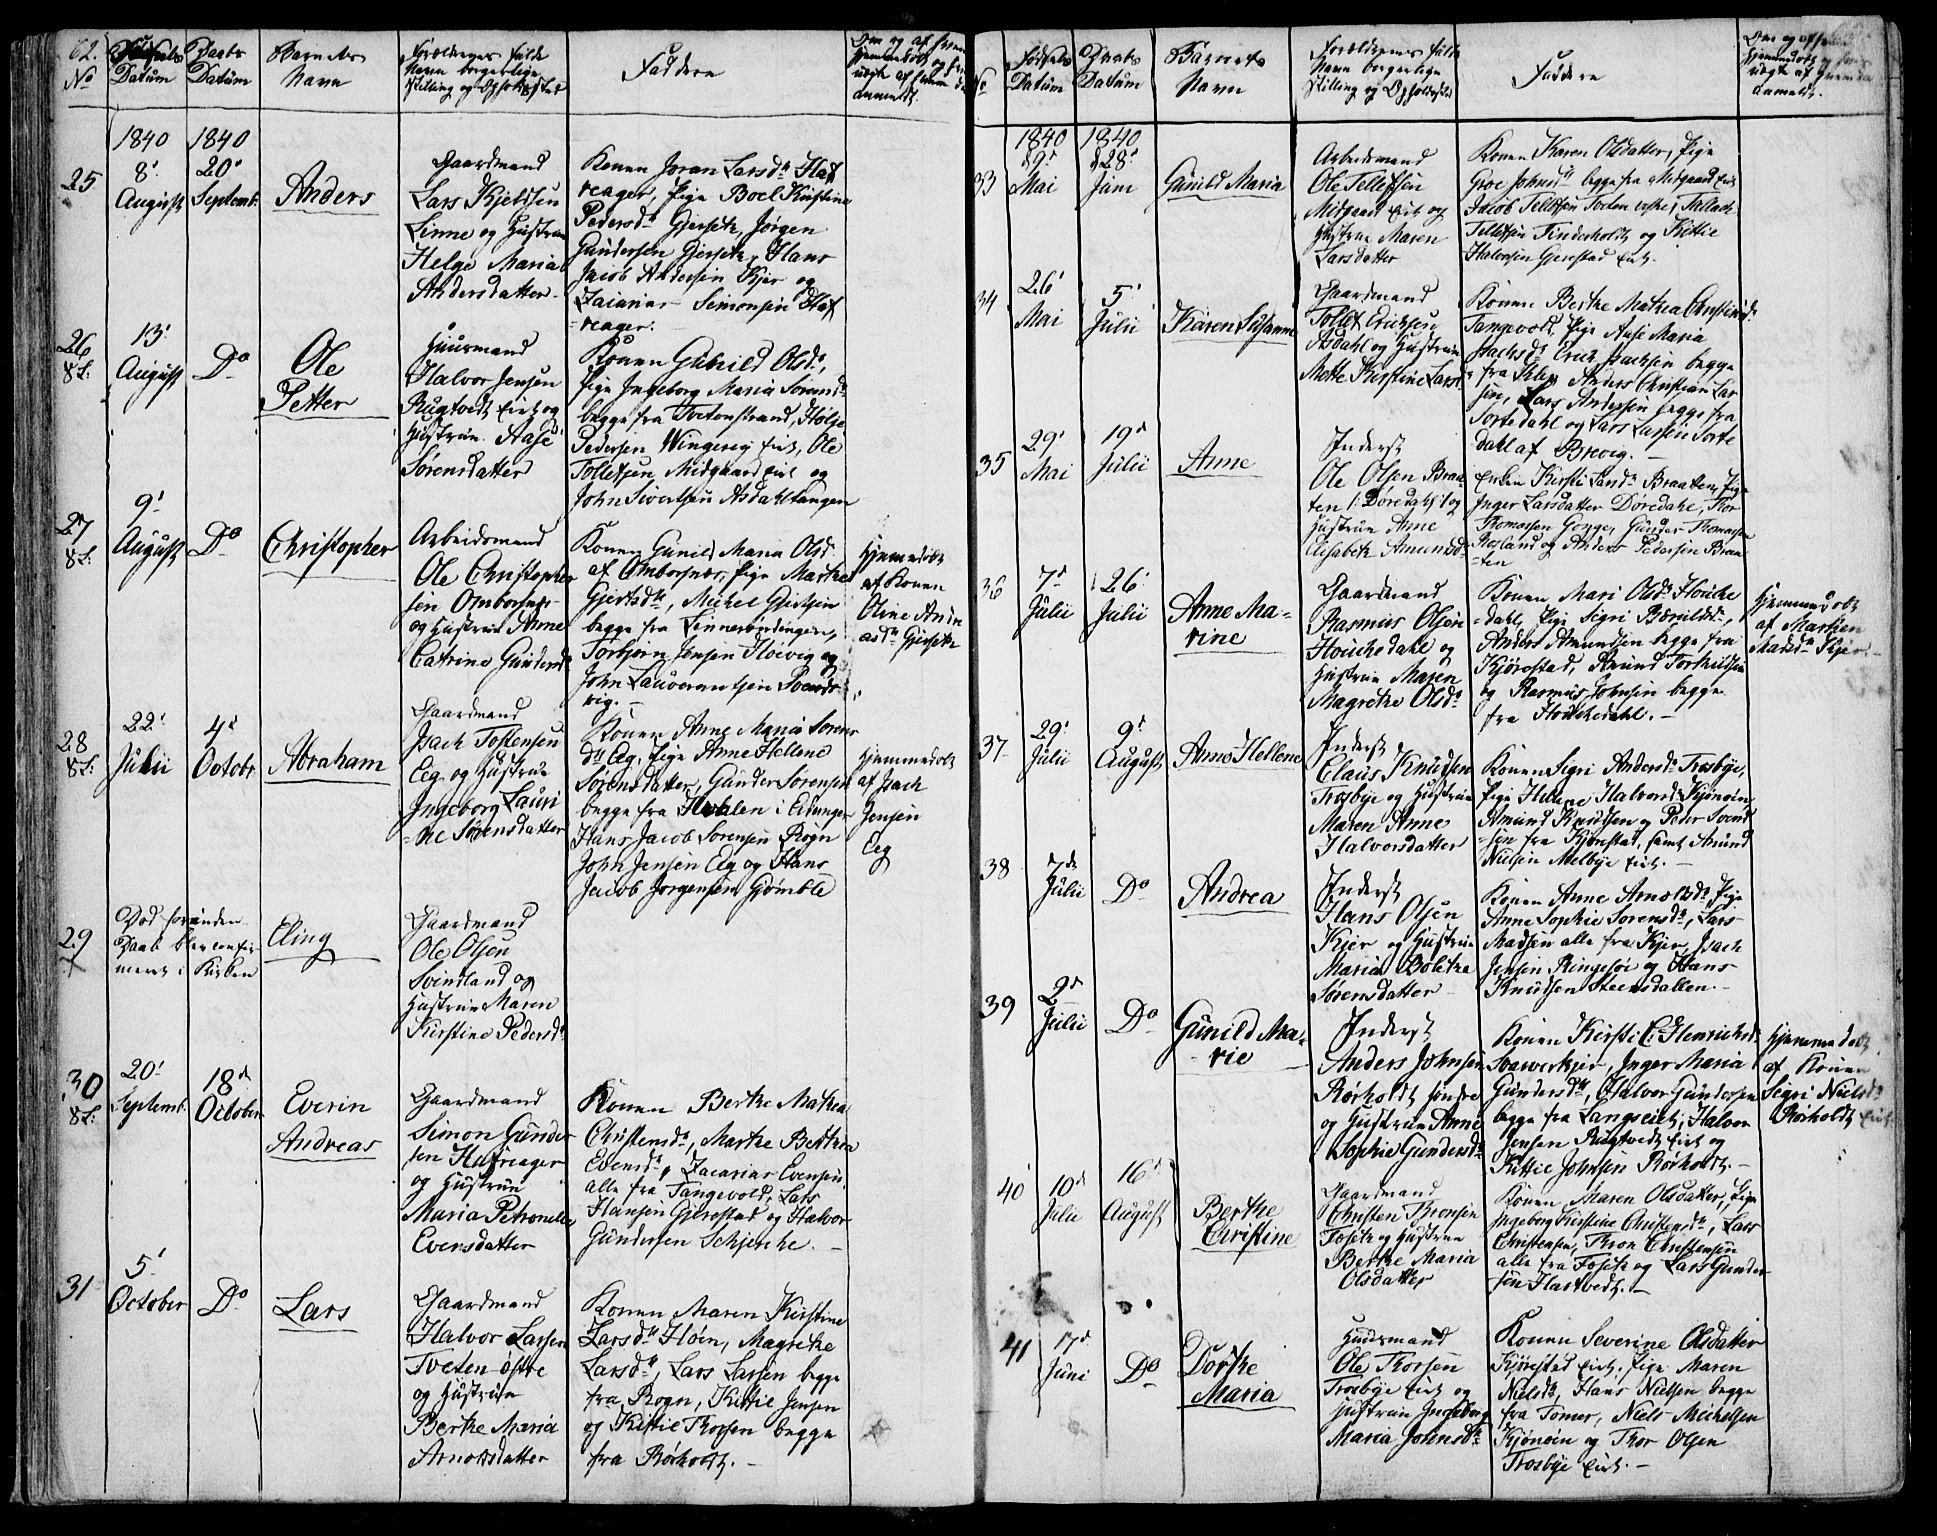 62.
No
Fødsels Datum
Daabs Datum
Barnets Navn
Forældrenes fulde Navn borgerlige Stilling og Opholdsted
Faddere
Om og af hvem hjemmedøbt
1840 1840
25
8'
August
20'
Septemb.
Anders
Gaardmand
Lars Kjeldsen
Linne og Hustrue
Helge Maria
Andersdatter
Konen Joran Larsdr Haf
reager, Pige Boel Kirstine
Pedersdr Gjersetr, Jørgen
Gundersen Gjersetr, Hans
Jacob Andersen Kjer og
Zacarias Simonsen Haf
reager.
26
8t:
13'
August
Do
Ole
Petter
Huusmand
Halvor Jensen
Rugtvedt Eiet og
Hustrue Aase
Sørensdatter
Konen Gunild Olsdr,
Pige Ingeborg Maria Sørensdr
begge fra Tvetenstrand, Holje
Pedersen Wingereig Eiet, Ole
Tollefsen Midgaard Eiet og
John Sivertsen Asdahltangen
27
8t:
9'
August
Do
Christopher
Arbeidsmand
Ole Christopher
sen Ombordsnes
og Hustrue Anne
Catrine Gundersdr
Konen Gunild Maria Olsdr
af Omborsnes, Pige Marthe
Gjertsdtr, Michel Gjertsen
begge fra
Torbjørn Jensen Hoevig og
John Lauverantsen Svends
vig.
Hjemmedøbt
af Konen
Oline
asdtr Gjersetr
28
8t:
22'
Julii
4d
Octobr
Abraham
Gaardmand
Isach Tostensen
Eeg og Hustrue
Ingeborg Lauri
ne Sørensdatter
Konen Anne Maria Sørens
dtr Eeg, Pige Anne Hellene
Sørensdatter, Gunder Sørensen
begge fra Hvalen i Eidanger
Hans Jacob Sørensen Rogn
John Jensen Eeg og Hans
Jacob Jørgensen Gromble
Hjemmedøbt
af Isach
Jensen
Eeg
29
Død forinden
Daab blev confir
meret i Kirken
Eling
Gaardmand
Ole Olsen
Svindland og
Hustrue Maren
Kirstine Pedersdr
30
8t:
20'
Septemb.
18d
October
Everin
Andreas
Gaardmand
Simon Gunder
sen Hafreager
og Hustrue
Maria Petronelle
Evensdatter
Konen Berthe Mathea
Christensdr, Marthe Berthea
Evensdr, Zacarias Evensen
alle fra Tangevold, Lars
Hansen Gjerestad og Halvor
Gundersen Schjerche.
31
5'
October
Do
Lars
Gaardmand
Halvor Larsen
Tveten østre
og Hustrue
Berthe Maria
Arnoldsdatter
Konen Maren Kirstine
Larsdtr Høin, Magrethe
Larsdtr, Lars Larsen begge
fra Rogn, Kittil Jensen
og Kittil Thorsen begge
fra Rørholdt.
No
Fødsels Datum
Daabs Datum
Barnets Navn
Forældrenes fulde Navn borgerlige Stilling og Opholdsted
Faddere
1840 1840
33
d 9d
Mai
d 28'
Juni
Gunild Maria
Arbeidsmand
Ole Tellefsen
Midgaard Eiet og
Hustrue Maren
Larsdatter
Konen Karen Olsdatter, Pige
Groe Johnsdtr begge fra Midgaard Eiet
Jacob Tellefsen Torten
Tellefsen Finderholdt og Kittie
Halvorsen Gjerestad Eiet.
34
26'
Mai
5'
Julii
Karen Susanne
Gaardmand
Tollef Erichsen
Asdahl og Hustrue
Mette Kirstine Larsdr
Konen Berthe Mathea Christensdr
Tangevold, Pige Anse Maria
Isachsdtr Erich Isachsen begge
fra Klep Anders Christian Lar
sen, Lars Andersen begge fra
Tortedahl og Lars Larsen Torte
dahl af Brevig.
35
29'
Mai
19d
Julii
Anne
Inderst
Ole Olsen Braa
ten /: Døredahl :/ og
Hustrue Anne
Elisabeth Amundsdr
Enken Kirsti Braatten, Pige
Inger Larsdatter Døredahl, Thor
Thomassen Gonge, Gunder Thomassen
og Anders Pedersen Braa
ten
36
7d
Julii
26'
Julii
Anne Ma-
rine
Gaardmand
Rasmus Olsen
Houchedahl og
Hustrue Maren
Magrethe Olsdr
Konen Mari Olsdr Houche
dahl, Pige Sigri Bæruldsdr,
Anders Amundsen begge fra
Kjørestad, Amund Torkildsen
og Rasmus Johnsen begge
fra Houchedahl.
Hjemmedøbt
af Marthe
Madsdr Kjer
37
29'
Julii
9d
August
Anne Hellene
Inderst
Claus Knudsen
Trosbye og Hustrue
Maren Anne
Halvorsdatter
Konen Sigri Andersdr Trosbye,
Pige Hellene Halvorsdr Kjønøen,
Amund Knudsen og Peder Svend
sen fra Kjønstad, samt Amund
Nielsen Melbye Eiet.
38
7de
Julii
Do
Andrea
Inderst
Hans Olsen
Kjer og Hustrue
Maria Bolethe
Sørensdatter
Konen Anne Arnoldsdr, Pige
Anne Sophie Sørensdr, Lars
Madsen alle fra Kjer, Isach
Jensen Ringesøe og Hans
Knudsen Steensdallen.
39
2d
Julii
Do
Gunild Ma-
rie
Inderst
Anders Johnsen
Rørholdt søndre
og Hustrue Anne
Sophie Gundersdr
Konen Kirsti C. Henrichsdr
Svaverkjer, Inger Maria
Gundersdtr, Halvor Gundersen
begge fra Langseiet, Halvor
Jensen Rugtvedt Eiet og
Kittil Johnsen Rørholdt.
Hjemmedøbt
af Konen
Sigri Nielsdr
Rørholdt Eiet
40
10d
Julii
16d
August
Berthe
Christine
Gaardmand
Christen Thronsen
Fosetr og Hustrue
Berthe Maria
Olsdatter
Konen Maren Olsdatter, Pige
Ingeborg Kirstine Christensdtr, Lars
Christensen, Thron Christensen
alle fra Fosetr og Lars Gunder
sen Hartvedt.
41
17d
Juni
Do
Dorthe
Maria
Huusmand
Ole Thorsen
Trosbye Eiet og
Hustrue Ingeborg
Maria Johnsdr
Konen Severine Olsdatter
Kjørestad Eiet, Pige Maren
Nielsdtr, Hans Nielsen begge
fra Tomer, Niels Michelsen
Kjønøen og Thor Olsen
Trosbye Eiet.